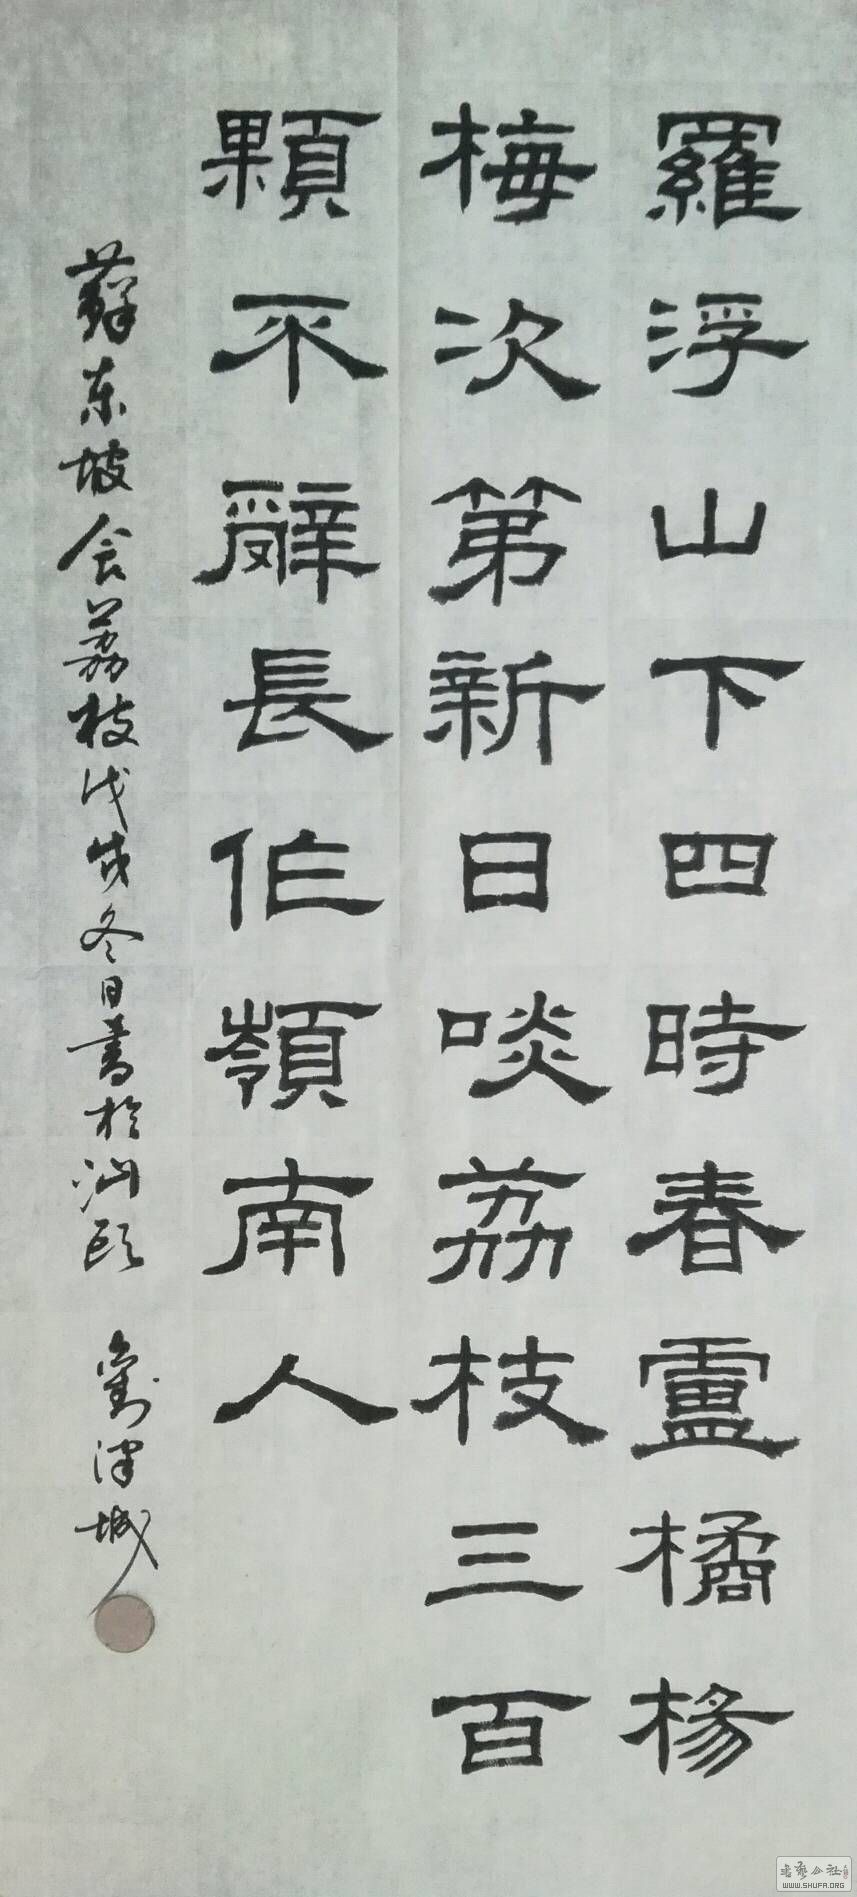 羅浮山下四時春盧橘楊
梅次第新日啖荔枝三百
顆不辭長作嶺南人
蘇东坡食荔枝戊戌冬日書於汕头
劉澤城
書藝公社
WWW.SHUFA.ORG